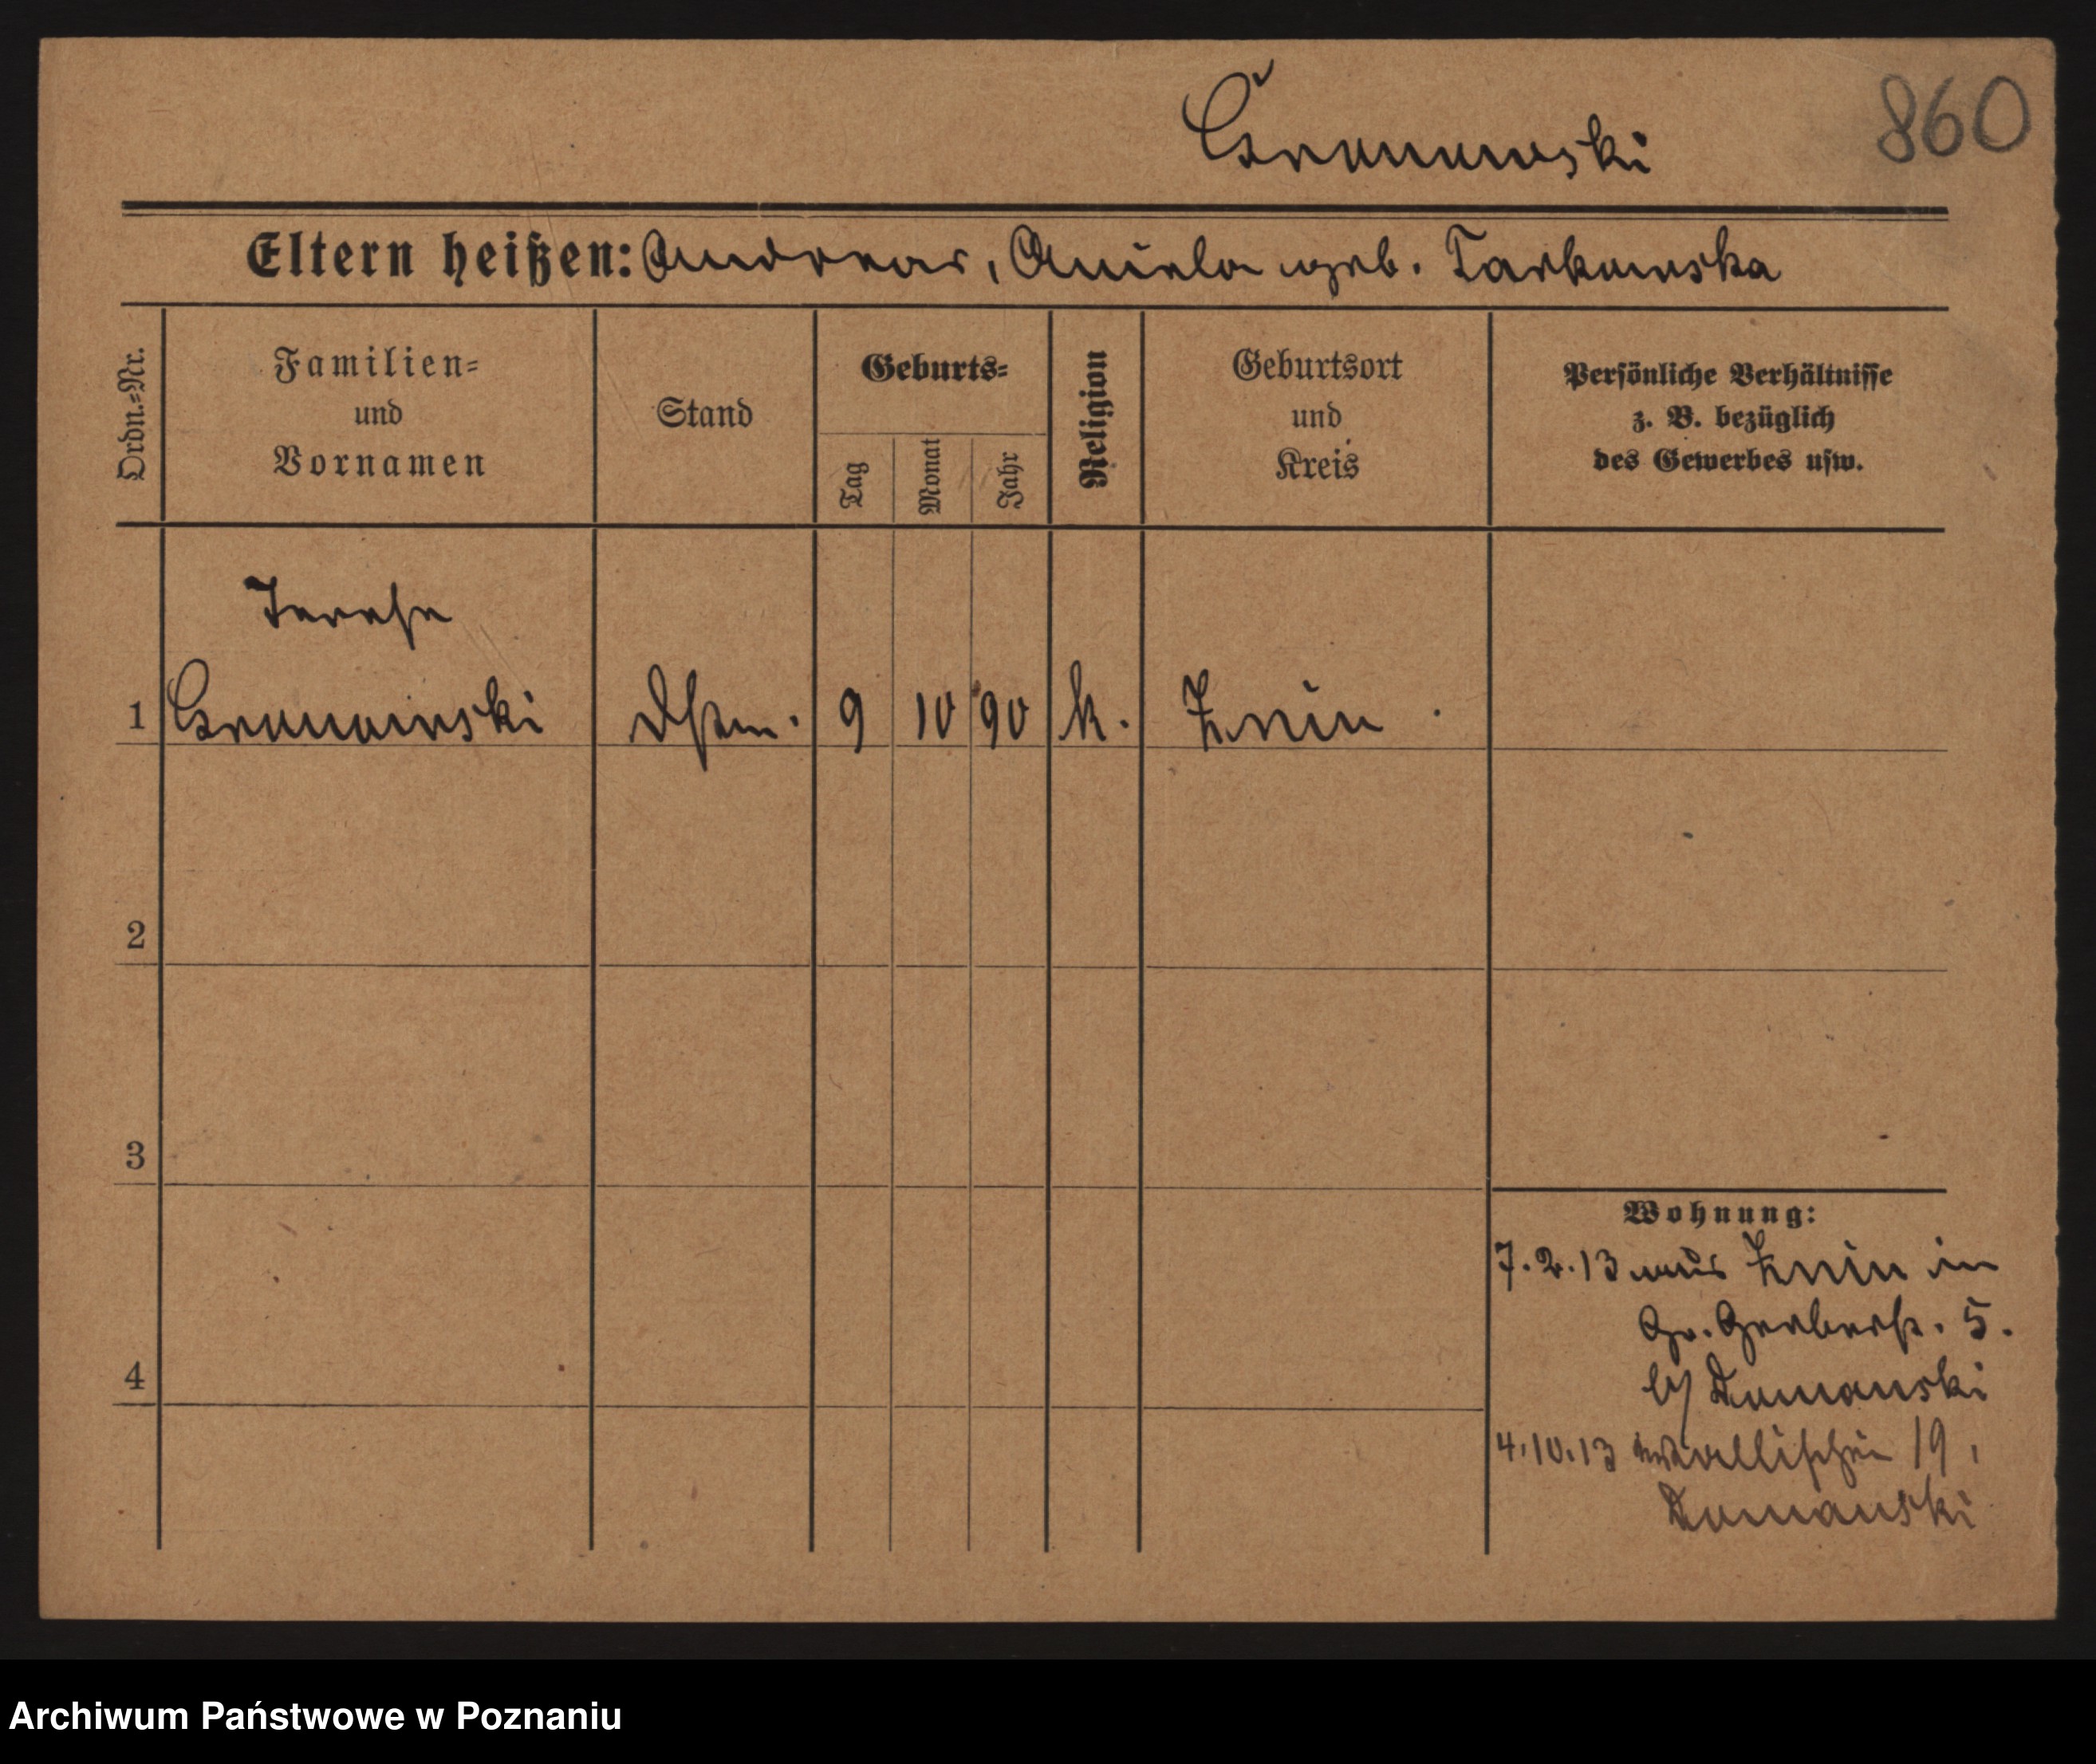 Gronowski 860
Eltern heißen: Andreas, Aniela geb. Tarkowska
Ordn.-Nr. Familien- und Vornamen Stand Geburts- Tag Monat Jahr Religion Geburtsort und Kreis Persönliche Verhältnisse z. B. bezüglich des Gewerbes usw.
Terese
1 Gronowski Dstm. 9 10 90 k. Znin
2
3
Wohnung:
7.2.13 aus Znin in
Gr. Gerberstr. 5.
b/ Domanski
4
4.10.13 Wallischei 19,
Domanski
Archiwum Państwowe w Poznaniu